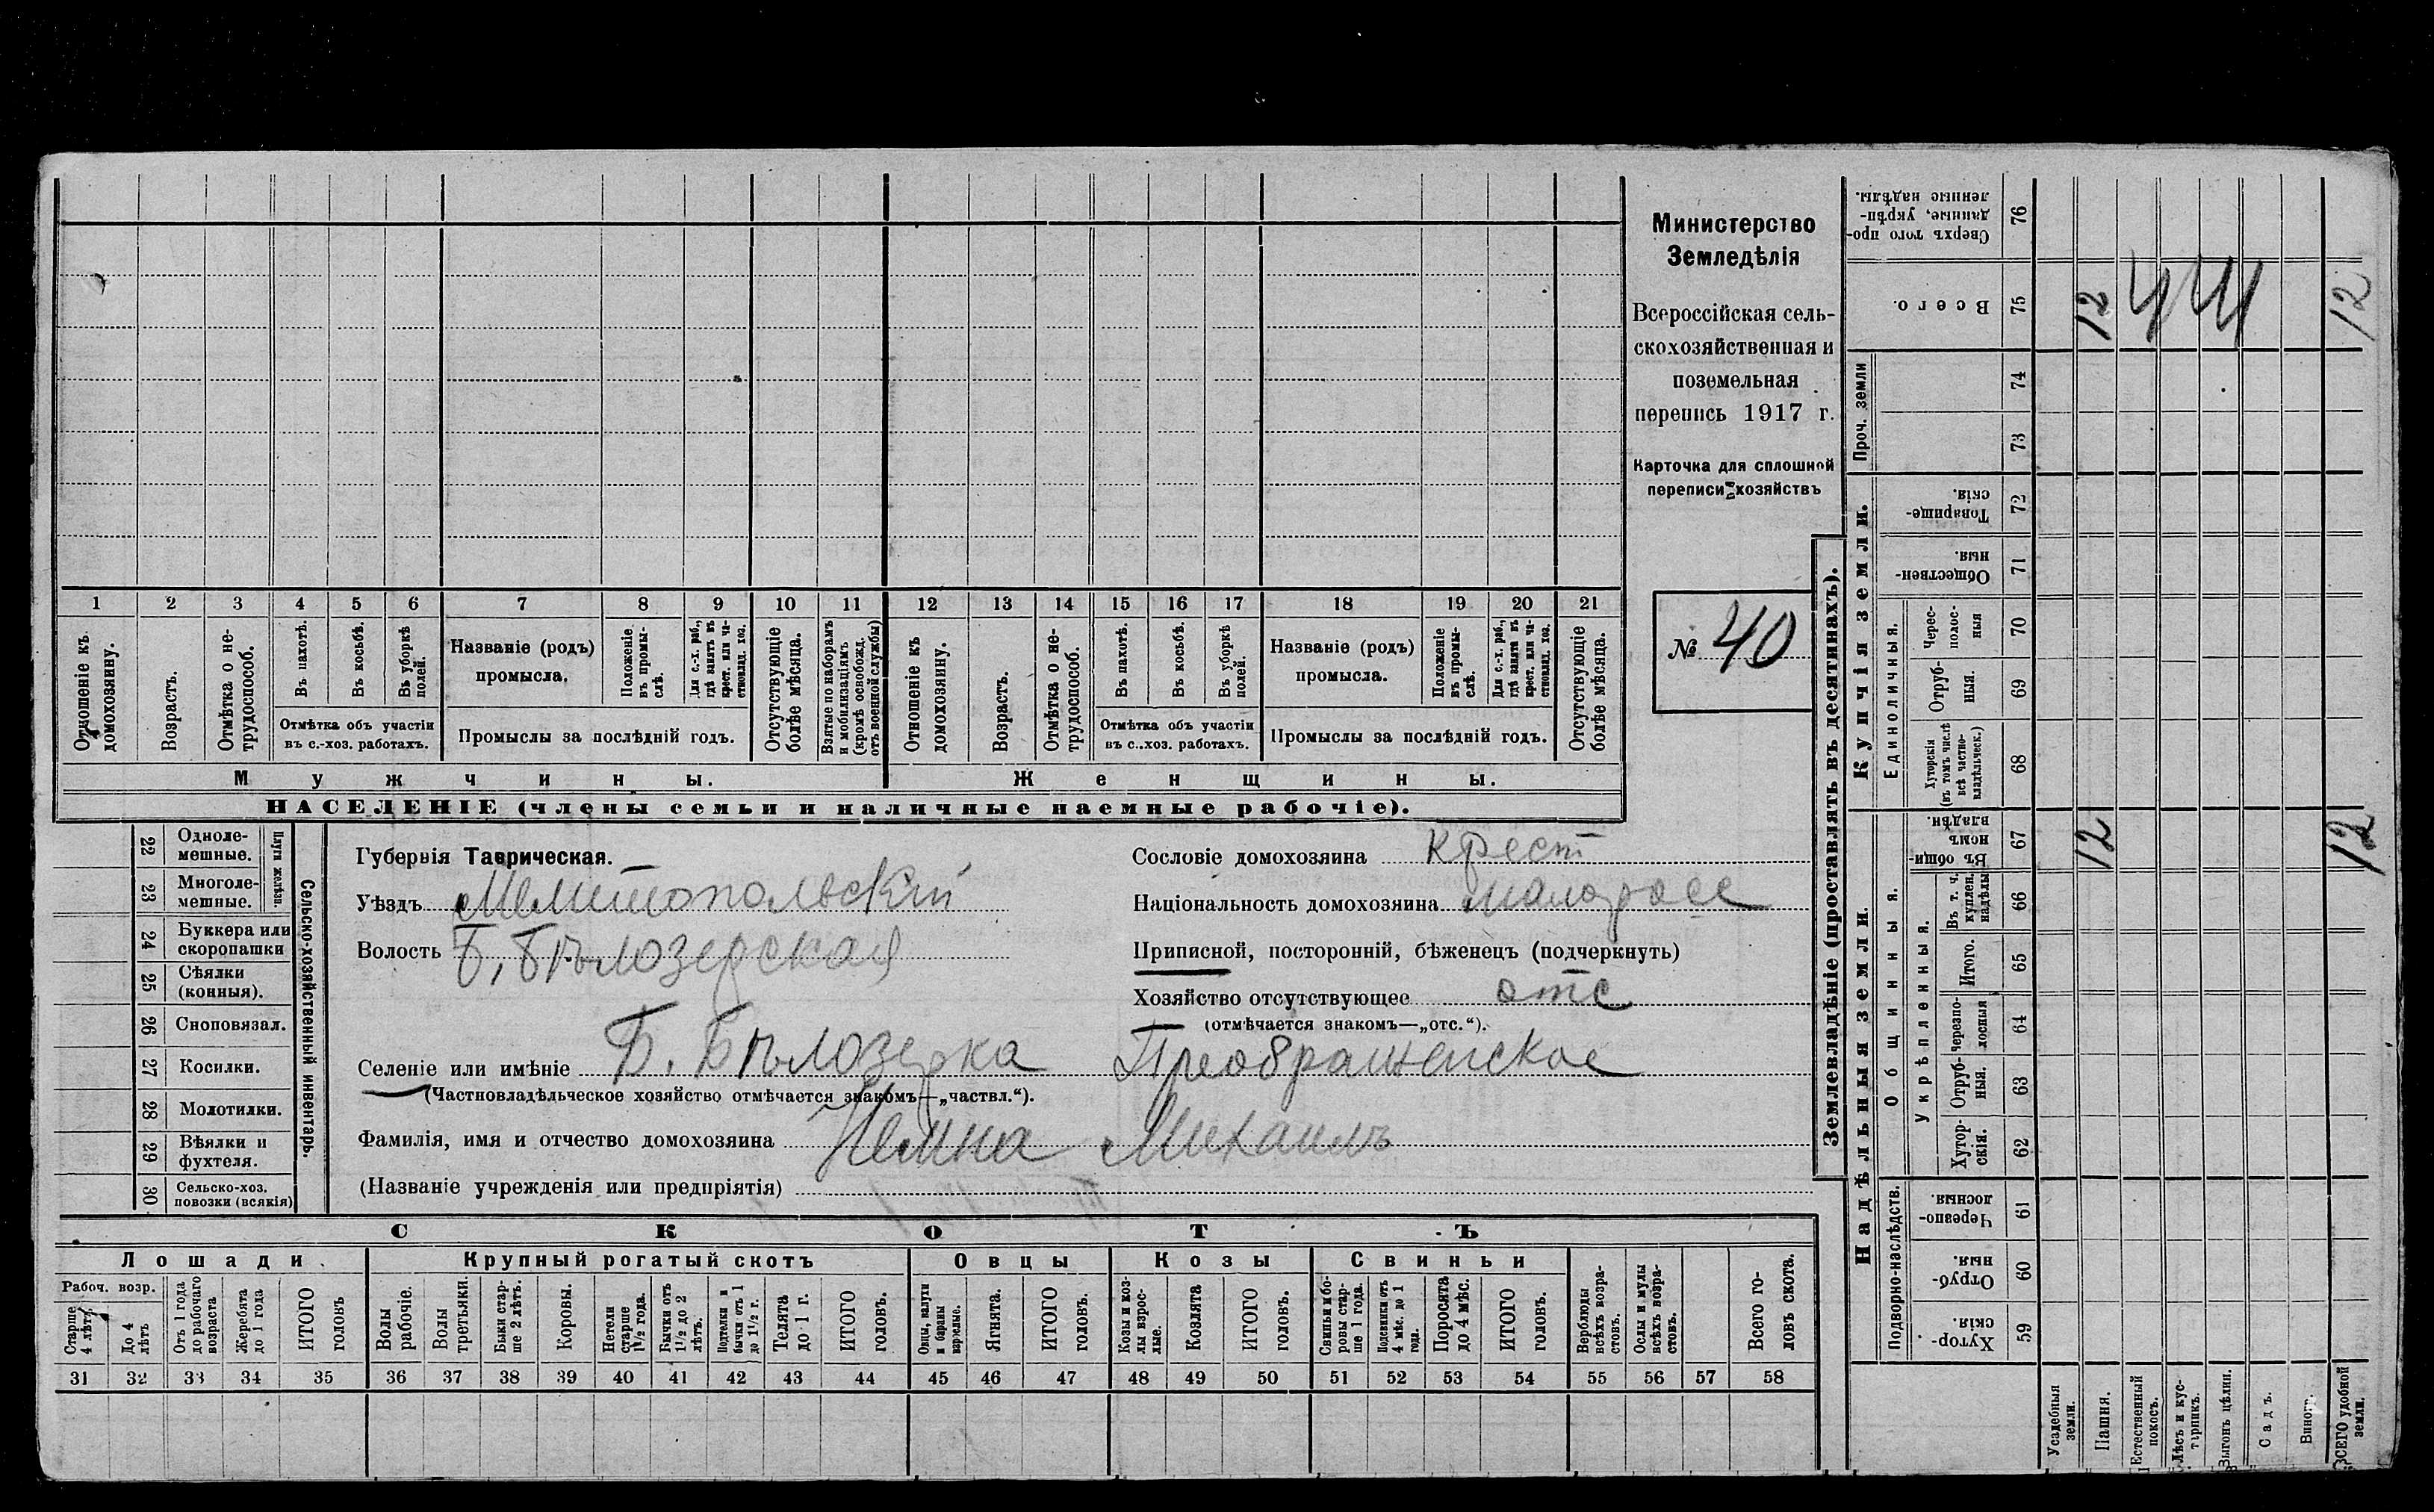 Министерство
Земледѣлія
Всероссійская сель-
скохозяйственная и
поземельная
перепись 1917 г.
Карточка для сплошной
переписи хозяйствъ
№ 40
1 2 3 4 5 6 7 8 9 10 11 12 13 14 15 16 17 18 19 20 21
Отношеніе къ домохозяину.
Возрастъ.
Отмѣтка о не-трудоспособ.
Въ пахотѣ.
Въ косьбѣ.
Въ уборкѣ полей.
Отмѣтка объ участіи
въ с.-хоз. работахъ.
Названіе (родъ)
промысла.
Положеніе въ промы-слѣ.
Для с.-х. раб., гдѣ занятъ въ крест. или ча-стновлад. хоз.
Промыслы за послѣдній годъ.
Отсутствующіе болѣе мѣсяца.
Взятые по наборамъ и мобилизаціямъ (кромѣ освобожд. отъ военной службы)
Отношеніе къ домохозяину.
Возрастъ.
Отмѣтка о не-трудоспособ.
Въ пахотѣ.
Въ косьбѣ.
Въ уборкѣ полей.
Отмѣтка объ участіи
въ с..хоз. работахъ.
Названіе (родъ)
промысла.
Положеніе въ промы-слѣ.
Для с.-х. раб., гдѣ занята въ крест. или ча-стновлад. хоз.
Промыслы за послѣдній годъ.
Отсутствующіе болѣе мѣсяца.
Мужчины. Женщины.
НАСЕЛЕНІЕ (члены семьи и наличные наемные рабочіе).
22 Одноле-мешные.
23 Многоле-мешные.
Плуги желѣзн.
24 Буккера или скоропашки
25 Сѣялки (конныя).
26 Сноповязал.
27 Косилки.
28 Молотилки.
29 Вѣялки и фухтеля.
30 Сельско-хоз. повозки (всякія)
Сельско-хозяйственный инвентарь.
Губернія Таврическая.
Уѣздъ Мелитопольскій
Волость Б. Бѣлозерская
Селеніе или имѣніе Б. Бѣлозерка Преображенское
(Частновладѣльческое хозяйство отмѣчается знакомъ—„частвл.“).
Фамилія, имя и отчество домохозяина Михаилъ
(Названіе учрежденія или предпріятія)
Сословіе домохозяина крест
Національность домохозяина малоросс
Приписной, посторонній, бѣженецъ (подчеркнуть)
Хозяйство отсутствующее отс
(отмѣчается знакомъ—„отс.“).
СКОТЪ
Лошади.
Рабоч. возр.
Старше 4 лѣтъ
До 4 лѣтъ
Отъ 1 года до рабочаго возраста
Жеребята до 1 года
ИТОГО головъ
Крупный рогатый скотъ
Волы рабочіе.
Волы третьяки.
Быки стар-ше 2 лѣтъ.
Коровы.
Нетели старше 1½ года.
Бычки отъ 1½ до 2 лѣтъ.
Подтелки и бычки отъ 1 до 1½ г.
Телята до 1 г.
ИТОГО головъ.
Овцы
Овцы, валухи и бараны взрослые.
Ягнята.
ИТОГО головъ.
Козы
Козы и коз-лы взрос-лые.
Козлята
ИТОГО головъ.
Свиньи
Свиньи и бо-ровы стар-ше 1 года.
Подсвинки отъ 4 мѣс. до 1 года.
Поросята до 4 мѣс.
ИТОГО головъ.
Верблюды всѣхъ возра-стовъ.
Ослы и мулы всѣхъ возра-стовъ.
Всего го-ловъ скота.
31 32 33 34 35 36 37 38 39 40 41 42 43 44 45 46 47 48 49 50 51 52 53 54 55 56 57 58
Землевладѣніе (проставлять въ десятинахъ).
Сверхъ того про-данные, укрѣп-ленные надѣлы. 76
Всего. 75 12 12
Проч. земли 74
73
Купчія земли.
Товарище-скія. 72
Обществен-ныя. 71
Единоличныя.
Черес-полос-ныя 70
Отруб-ныя. 69
Хуторскія (въ томъ числѣ всѣ частно-владѣльческ.) 68
Надѣльныя земли.
Общинныя.
Въ общин-номъ владѣн. 67 12 12
Укрѣпленныя.
Въ т. ч. куплен. надѣлы 66
Итого. 65
Черезпо-лосныя 64
Отруб-ныя. 63
Хутор-скія. 62
Подворно-наслѣдств.
Черезпо-лосныя. 61
Отруб-ныя. 60
Хутор-скія. 59
Усадебныя земли.
Пашня.
Естественный покосъ.
Лѣсъ и кус-тарникъ.
Выгонъ цѣлин.
Садъ.
Виногр.
ВСЕГО удобной земли.